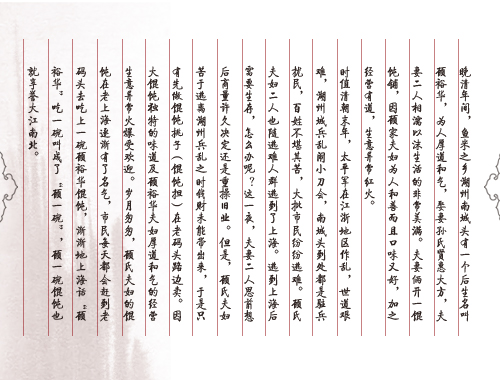 晚清年间，鱼米之乡湖州南城头有一个后生名叫
顾裕华，为人厚道和气，娶妻孙氏贤惠大方，夫
妻二人相濡以沫生活的非常美满。夫妻俩开一馄
饨铺，因顾家夫妇为人和善而且口味又好，加之
经营有道，生意异常红火。
时值清朝末年，太平军在江浙地区作乱，世道艰
难，湖州城兵乱闹小刀会，南城头到处都是驻兵
扰民，百姓不堪其苦，大批市民纷纷逃难。顾氏
夫妇二人也随逃难人群逃到了上海。逃到上海后
需要生存，怎么办呢？这一夜，夫妻二人思前想
后商量许久决定还是重操旧业。但是，顾氏夫妇
苦于逃离湖州兵乱之时钱财未能带出来，于是只
有先做馄饨挑子（馄饨担）在老码头路边卖。因
大馄饨独特的味道及顾裕华夫妇厚道和气的经营
生意异常火爆受欢迎。岁月匆匆，顾氏夫妇的馄
饨在老上海逐渐有了名气，市民每天都会赶到老
码头去吃上一碗顾裕华馄饨，渐渐地上海话“顾
裕华”吃一碗叫成了“顾一碗”，顾一碗馄饨也
就享誉大江南北。